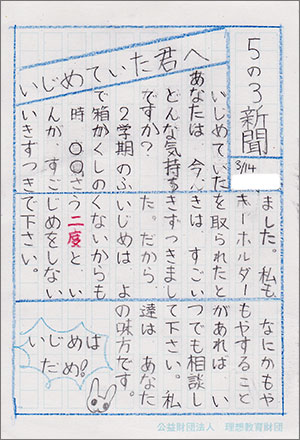 5の3新聞
3/14
いじめていた君へ
いじめていた
あなたは、今、
どんな気持ち
ですか？
2学期のふ
で箱かくしの
時、〇〇さ
んが、すご
いきずつき
ました。私も
キーホルダー
を取られたと
きは、すごい
きずつきまし
た。だから
いじめは、よ
くないからも
う二度とい
じめをしない
で下さい。
なにかもや
もやすること
があれば、い
つでも相談し
て下さい。私
達は、あなた
の味方です。
いじめは
だめ!
公益財団法人 理想教育財団